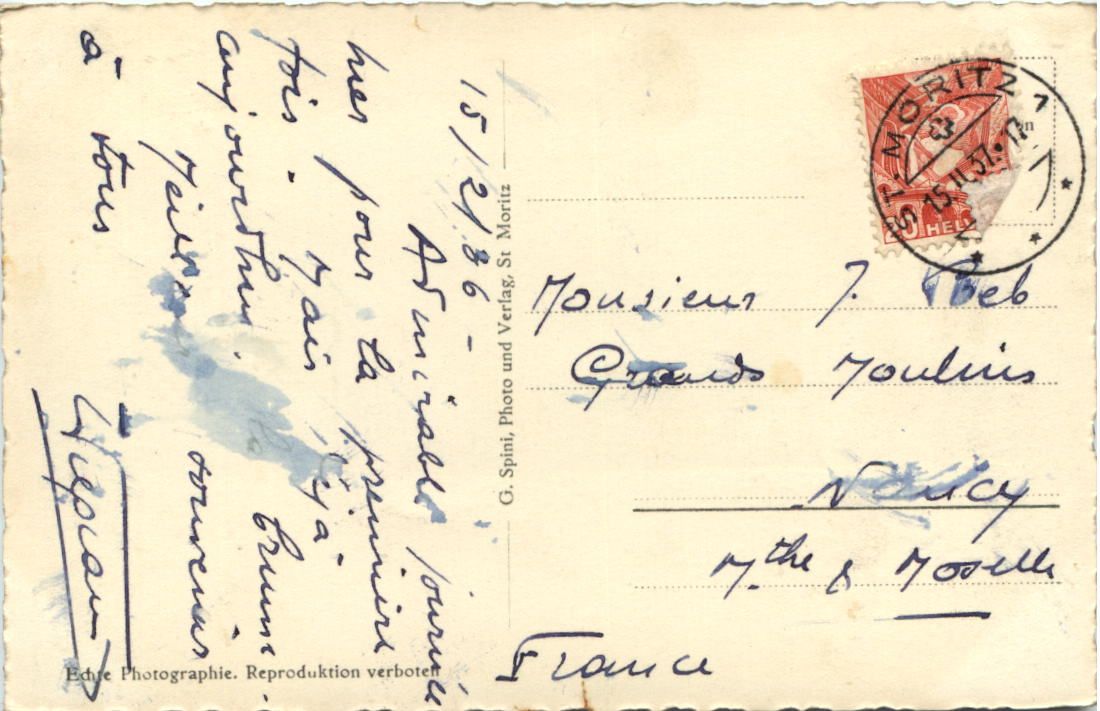 15/2/36 -
Admirable journée
hier pour la première
fois - Mais déjà
aujourd'hui, la brume.
Meilleurs souvenirs
à tous
G. Spini, Photo und Verlag, St Moritz
Echte Photographie. Reproduktion verboten
ST. MORITZ 1
15.II.37.
HELV
Monsieur J.
Grands Moulins
Nancy
Mthe & Moselle
France